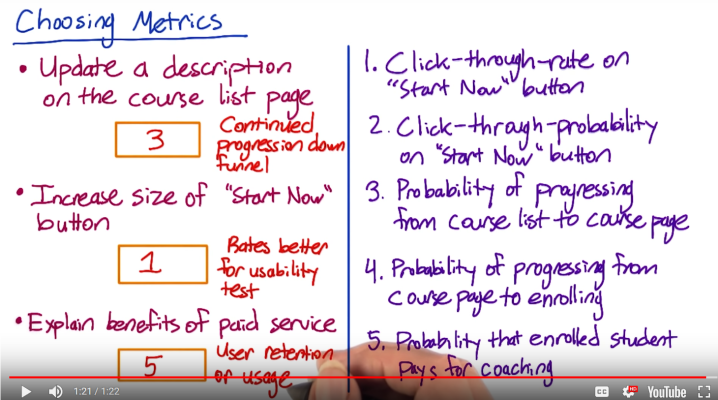 Choosing Metrics
• Update a description
on the course list page
3
Continued
progression down
funnel
• Increase size of "Start Now"
button
1
Rates better
for usability
test
• Explain benefits of paid service
5
User retention
or usage
1. Click-through-rate on
"Start Now" button
2. Click-through-probability
on "Start Now" button
3. Probability of progressing
from course list to course page
4. Probability of progressing from
course page to enrolling
5. Probability that enrolled student
pays for coaching
1:21 / 1:22
CC
HD
YouTube